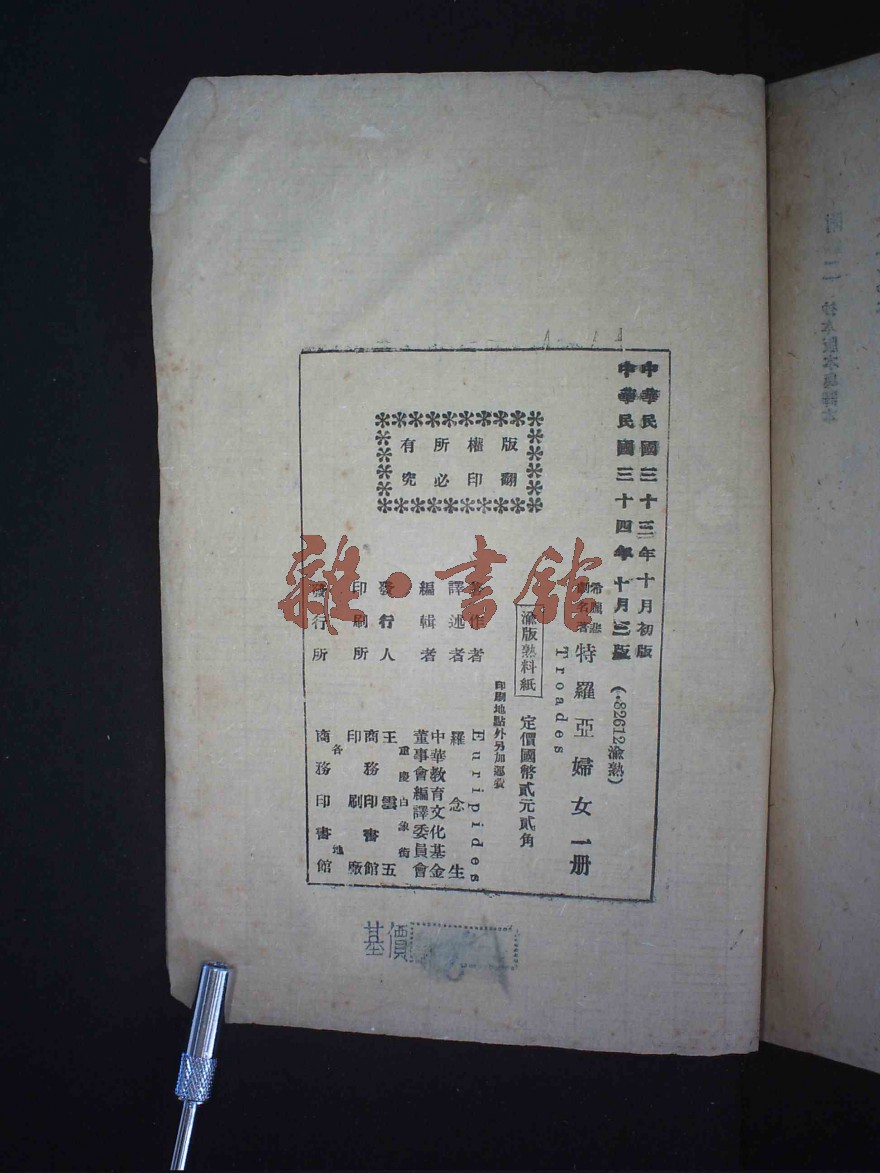 中華民國三十三年十月初版
中華民國三十四年十月三版
(·82612渝熟)
希臘悲
劇名著
特羅亞婦女 一册
Troades
渝版熟料紙 定價國幣貳元貳角
印刷地點外另加運費
著作者 Euripides
譯述者 羅念生
編輯者 中華教育文化基金
董事會編譯委員會
重慶白象街
發行人 王雲五
印刷所 商務印書館
印刷廠
發行所 各地
商務印書館
版權所有
翻印必究
基價
雜·書館